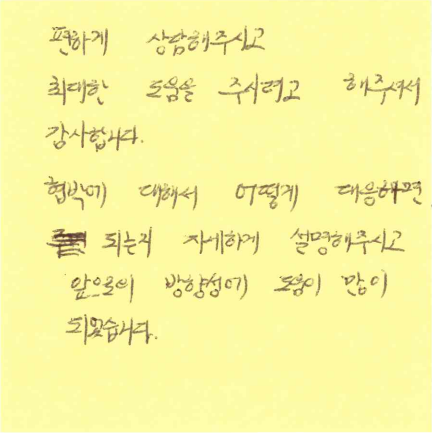 편하게 상담해주시고
최대한 도움을 주시려고 해주셔서
감사합니다.
협박에 대해서 어떻게 대응하면
되는지 자세하게 설명해주시고
앞으로의 방향성에 도움이 많이
되었습니다.